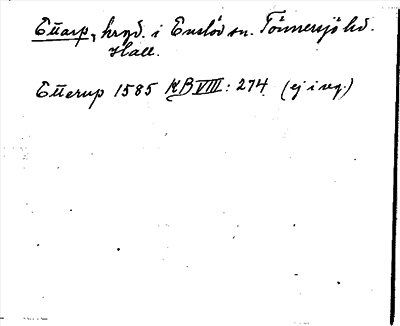 Ettarp, hrgd. i Enslöv sn. Tönnersjö hd.
Hall.
Etterup 1585 KB VIII: 274. (ej i reg.)